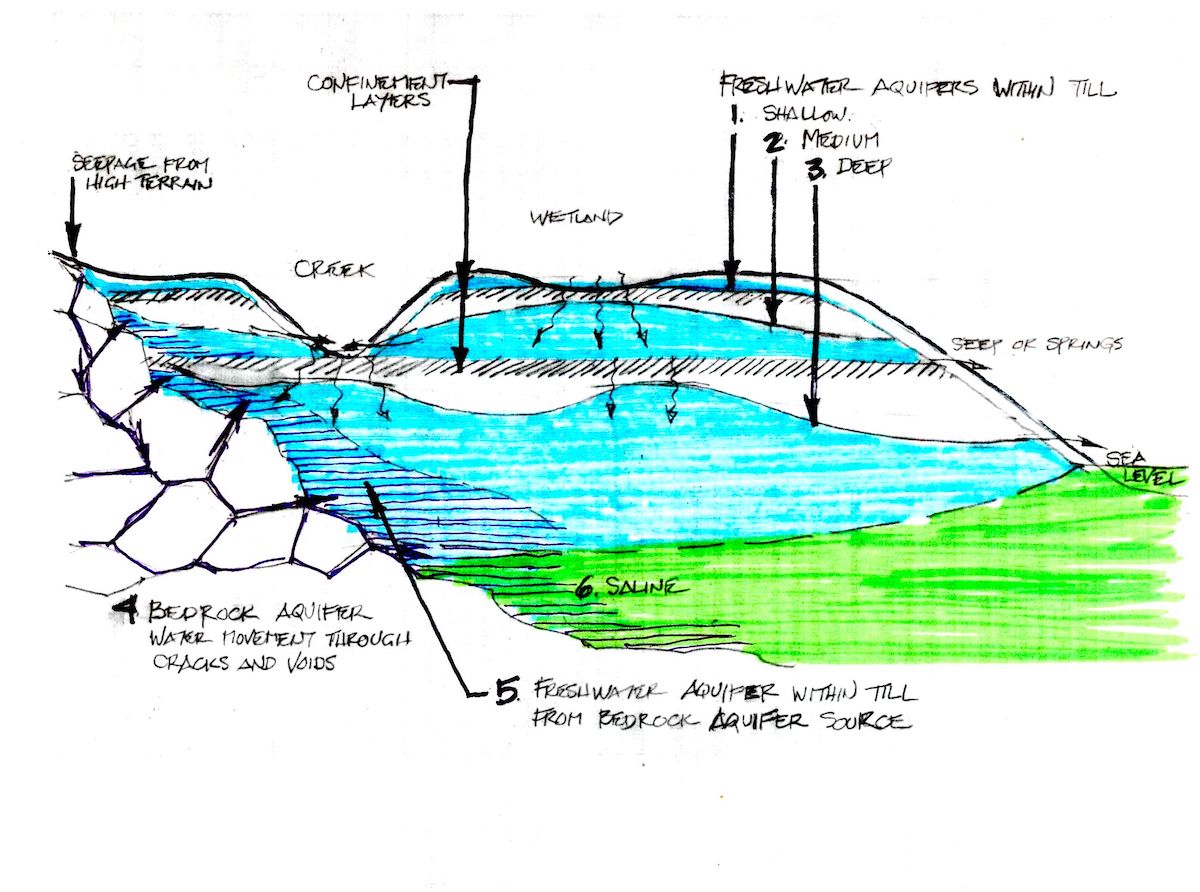 CONFINEMENT
LAYERS
FRESHWATER AQUIFERS WITHIN TILL
1. SHALLOW.
2. MEDIUM
3. DEEP
SEEPAGE FROM
HIGH TERRAIN
WETLAND
CREEK
SEEP OR SPRINGS
SEA
LEVEL
6. SALINE
4 BEDROCK AQUIFER
WATER MOVEMENT THROUGH
CRACKS AND VOIDS
5. FRESHWATER AQUIFER WITHIN TILL
FROM BEDROCK AQUIFER SOURCE